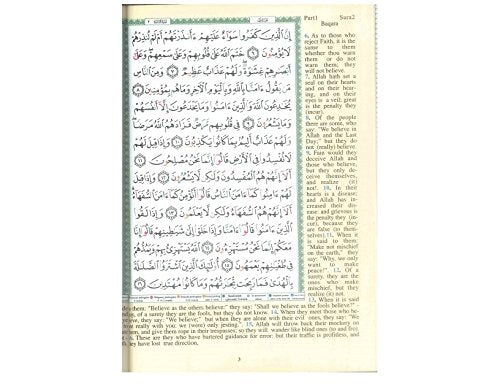 Part1 Sura2
Baqara
إِنَّ الَّذِينَ كَفَرُوا سَوَاءٌ عَلَيْهِمْ ءَأَنذَرْتَهُمْ أَمْ لَمْ تُنذِرْهُمْ
لَا يُؤْمِنُونَ ٦ خَتَمَ اللَّهُ عَلَىٰ قُلُوبِهِمْ وَعَلَىٰ سَمْعِهِمْ وَعَلَىٰ
أَبْصَٰرِهِمْ غِشَٰوَةٌ وَلَهُمْ عَذَابٌ عَظِيمٌ ٧ وَمِنَ النَّاسِ
مَن يَقُولُ ءَامَنَّا بِاللَّهِ وَبِالْيَوْمِ الْآخِرِ وَمَا هُم بِمُؤْمِنِينَ ٨
يُخَٰدِعُونَ اللَّهَ وَالَّذِينَ ءَامَنُوا وَمَا يَخْدَعُونَ إِلَّا أَنفُسَهُمْ
وَمَا يَشْعُرُونَ ٩ فِي قُلُوبِهِم مَّرَضٌ فَزَادَهُمُ اللَّهُ مَرَضًا
وَلَهُمْ عَذَابٌ أَلِيمٌ بِمَا كَانُوا يَكْذِبُونَ ١٠ وَإِذَا قِيلَ لَهُمْ
لَا تُفْسِدُوا فِي الْأَرْضِ قَالُوا إِنَّمَا نَحْنُ مُصْلِحُونَ ١١
أَلَا إِنَّهُمْ هُمُ الْمُفْسِدُونَ وَلَٰكِن لَّا يَشْعُرُونَ ١٢ وَإِذَا قِيلَ
لَهُمْ ءَامِنُوا كَمَا ءَامَنَ النَّاسُ قَالُوا أَنُؤْمِنُ كَمَا ءَامَنَ السُّفَهَاءُ
أَلَا إِنَّهُمْ هُمُ السُّفَهَاءُ وَلَٰكِن لَّا يَعْلَمُونَ ١٣ وَإِذَا لَقُوا
الَّذِينَ ءَامَنُوا قَالُوا ءَامَنَّا وَإِذَا خَلَوْا إِلَىٰ شَيَٰطِينِهِمْ قَالُوا إِنَّا
مَعَكُمْ إِنَّمَا نَحْنُ مُسْتَهْزِءُونَ ١٤ اللَّهُ يَسْتَهْزِئُ بِهِمْ وَيَمُدُّهُمْ
فِي طُغْيَٰنِهِمْ يَعْمَهُونَ ١٥ أُولَٰئِكَ الَّذِينَ اشْتَرَوُا الضَّلَٰلَةَ
بِالْهُدَىٰ فَمَا رَبِحَت تِّجَٰرَتُهُمْ وَمَا كَانُوا مُهْتَدِينَ ١٦
6. As to those who
reject Faith, it is the
same to them
whether thou warn
them or do not
warn them; they
will not believe.
7. Allah hath set a
seal on their hearts
and on their hear-
ing, and on their
eyes is a veil; great
is the penalty they
(incur).
8. Of the people
there are some, who
say: "We believe in
Allah and the Last
Day;" but they do
not (really) believe.
9. Fain would they
deceive Allah and
those who believe,
but they only de-
ceive themselves,
and realize (it)
not! 10. In their
hearts is a disease;
and Allah has in-
creased their dis-
ease: and grievous is
the penalty they (in-
cur), because they
are false (to them-
selves). 11. When it
is said to them:
"Make not mischief
on the earth," they
say: "Why, we only
want to make
peace!" 12. Of a
surety, they are the
ones who make
mischief, but they
realize (it) not.
13. When it is said
them: "Believe as the others believe:" they say: "Shall we believe as the fools believe?"
of a surety, they are the fools, but they do not know. 14. When they meet those who be-
they say: "We believe;" but when they are alone with their evil ones, they say: "We
really with you: we (were) only jesting." 15. Allah will throw back their mockery on
and give them rope in their trespasses, so they will wander like blind ones (to and fro)
These are they who have bartered guidance for error: but their traffic is profitless, and
they have lost true direction,
3